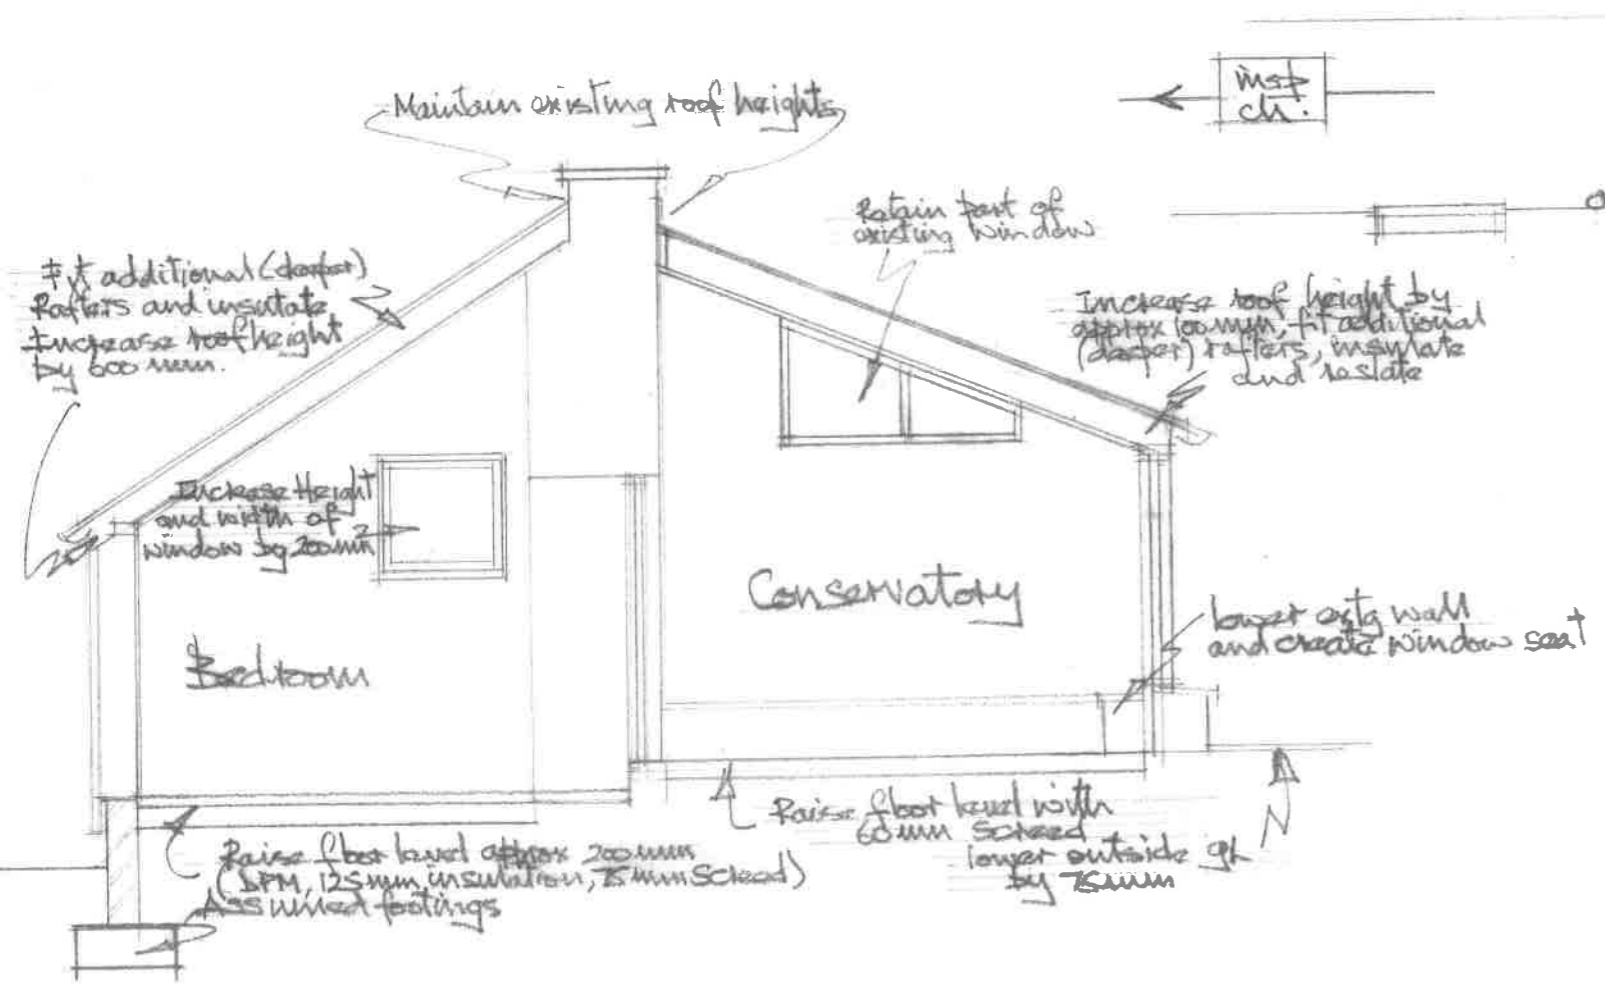 Maintain existing roof heights
insp
ch.
Retain part of
existing window
Fit additional (deeper)
Rafters and insulate
Increase roof height
by 600 mm.
Increase roof height by
approx 100mm, fit additional
(deeper) rafters, insulate
and reslate
Increase Height
and width of
window by 200mm
Conservatory
Bedroom
lower extg wall
and create window seat
Raise floor level with
60mm Screed
lower outside gL
by 75mm
Raise floor level approx 200mm
(DPM, 125mm insulation, 75mm Screed)
Assumed footings